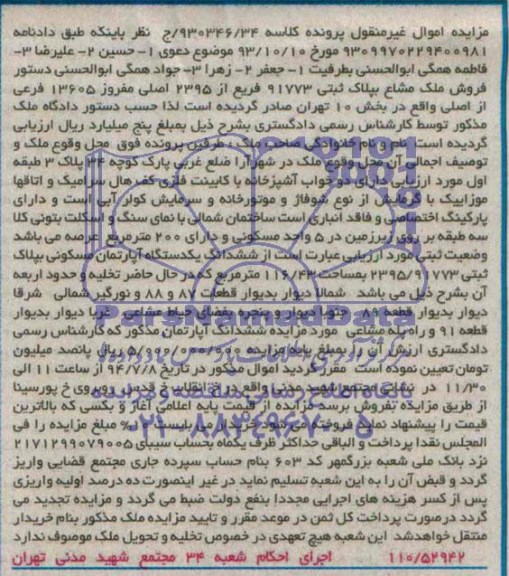 مزایده اموال غیرمنقول پرونده کلاسه ۹۳۰۳۴۶/۳۴/ج نظر باینکه طبق دادنامه
۹۳۰۹۹۷۰۲۲۹۴۰۰۹۸۱ مورخ ۹۳/۱۰/۱۰ موضوع دعوی ۱- حسین ۲- علیرضا ۳-
فاطمه همگی ابوالحسنی بطرفیت ۱- جعفر ۲- زهرا ۳- جواد همگی ابوالحسنی دستور
فروش ملک مشاع بپلاک ثبتی ۹۱۷۷۳ فریع از ۲۳۹۵ اصلی مفروز ۱۳۶۰۵ فرعی
از اصلی واقع در بخش ۱۰ تهران صادر گردیده است لذا حسب دستور دادگاه ملک
مذکور توسط کارشناس رسمی دادگستری بشرح ذیل بمبلغ پنج میلیارد ریال ارزیابی
گردیده است: نام و نام خانوادگی صاحب ملک: طرفین پرونده فوق محل وقوع ملک و
توصیف اجمالی آن محل وقوع ملک در شهرآرا ضلع غربی پارک کوچه ۳۴ پلاک ۳ طبقه
اول مورد ارزیابی دارای دو خواب آشپزخانه با کابینت فلزی کف هال سرامیک و اتاقها
موزاییک با گرمایش از نوع شوفاژ و موتورخانه و سرمایش کولر آبی است و دارای
پارکینگ اختصاصی و فاقد انباری است ساختمان شمالی با نمای سنگ و اسکلت بتونی کلا
سه طبقه بر روی زیرزمین در ۵ واحد مسکونی و دارای ۲۰۰ مترمربع عرصه می باشد
وضعیت ثبتی مورد ارزیابی عبارت است از ششدانگ یکدستگاه آپارتمان مسکونی بپلاک
ثبتی ۲۳۹۵/۹۱۷۷۳ بمساحت ۱۱۶/۴۳ مترمربع که در حال حاضر تخلیه و حدود اربعه
آن بشرح ذیل می باشد شمالا دیوار بدیوار قطعات ۸۷ و ۸۸ و نورگیر شمالی شرقا
دیوار بدیوار قطعه ۸۹ جنوبا دیوار و پنجره بفضای حیاط مشاعی غربا دیوار بدیوار
قطعه ۹۱ و راه پله مشاعی مورد مزایده ششدانگ آپارتمان مذکور که کارشناس رسمی
دادگستری ارزش آنرا بمبلغ پایه مزایده ۵/۰۰۰/۰۰۰/۰۰۰ ریال پانصد میلیون
تومان تعیین نموده است مقرر گردید اموال مذکور در تاریخ ۹۴/۷/۸ از ساعت ۱۱ الی
۱۱/۳۰ در نشانی مجتمع شهید مدنی واقع در خ انقلاب خ قدس روبروی خ پورسینا
از طریق مزایده بفروش برسد مزایده از قیمت پایه اعلامی آغاز و بکسی که بالاترین
قیمت را پیشنهاد نماید فروخته می شود خریدار می بایست ۱۰% مبلغ مزایده را فی
المجلس نقدا پرداخت و الباقی حداکثر ظرف یکماه بحساب سیبای ۲۱۷۱۲۹۹۰۷۹۰۰۵
نزد بانک ملی شعبه بزرگمهر کد ۶۰۳ بنام حساب سپرده جاری مجتمع قضایی واریز
گردد و قبض آن را به این شعبه تسلیم نماید در غیر اینصورت ده درصد اولیه واریزی
پس از کسر هزینه های اجرایی مجددا بنفع دولت ضبط می گردد و مزایده تجدید می
گردد در صورت پرداخت کل ثمن در موعد مقرر و تایید مزایده ملک مذکور بنام خریدار
منتقل خواهد شد این شعبه هیچ تعهدی در خصوص تخلیه و تحویل ملک موصوف ندارد
۱۱۰/۵۲۹۴۲ اجرای احکام شعبه ۳۴ مجتمع شهید مدنی تهران
ParsNamadData
پایگاه اطلاع رسانی مناقصه و مزایده
۰۲۱-۸۸۳۴۹۶۷۰-۵